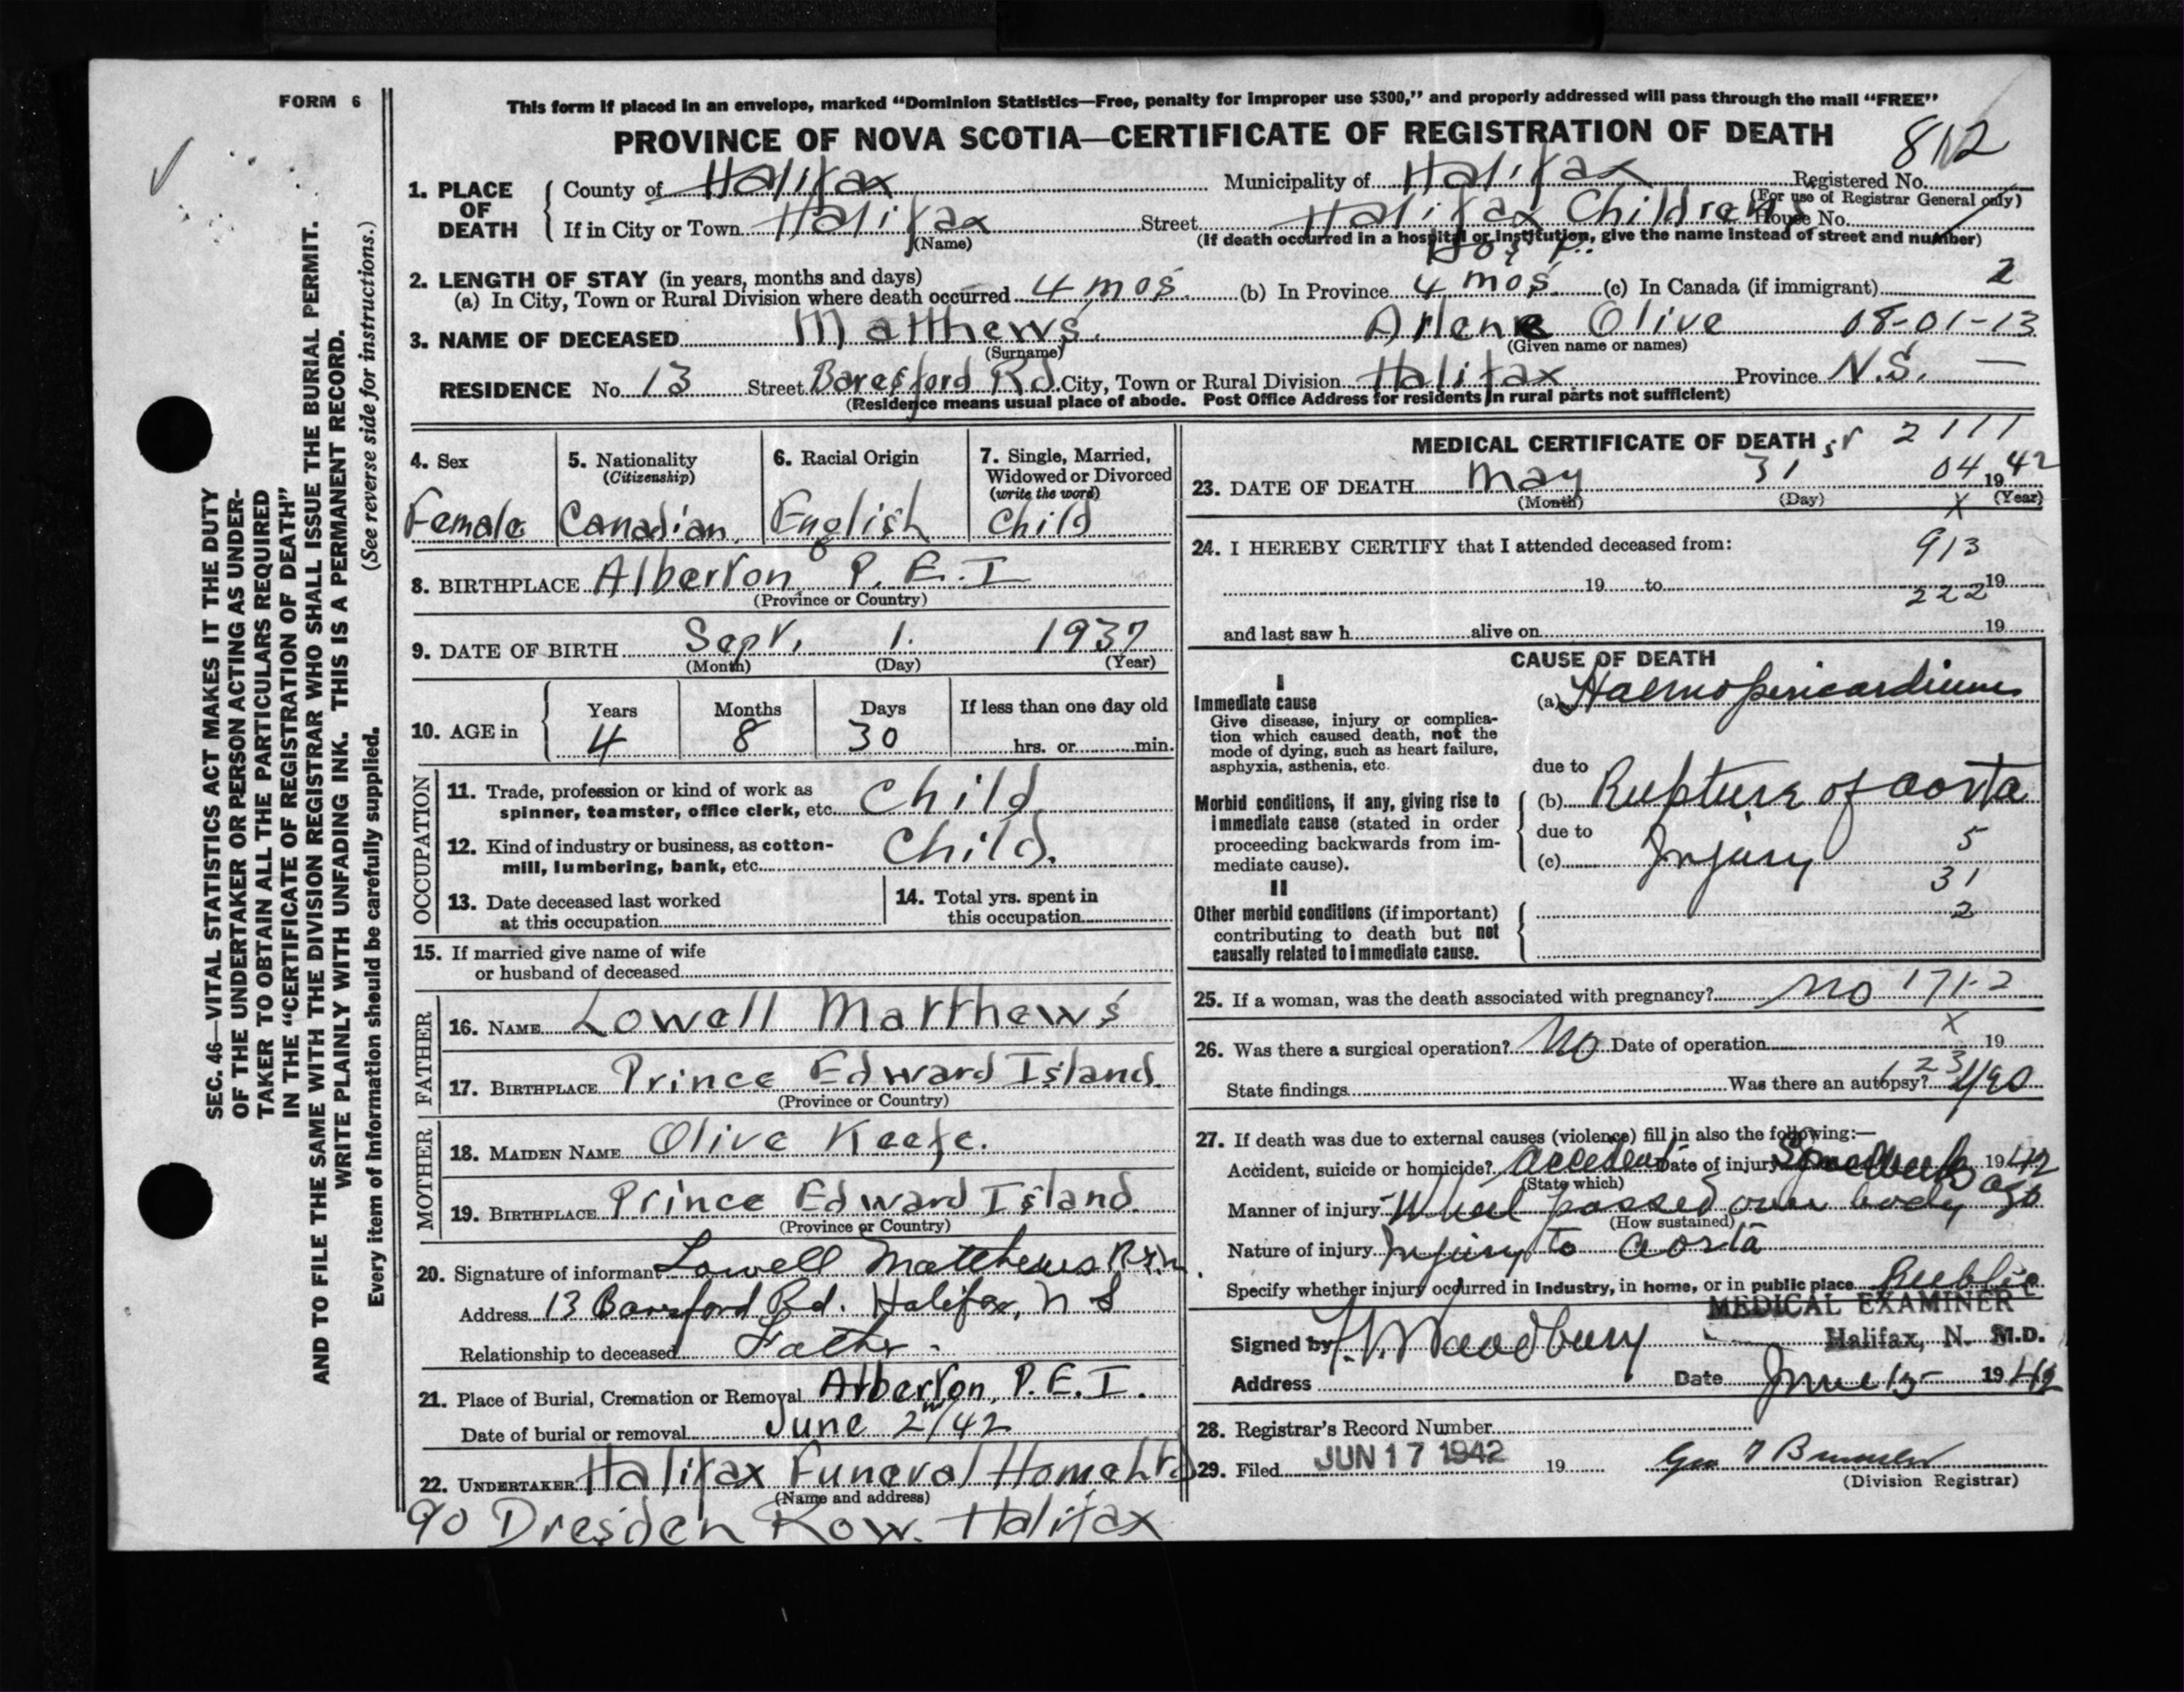 FORM 6
This form if placed in an envelope, marked “Dominion Statistics—Free, penalty for improper use $300,” and properly addressed will pass through the mail “FREE”
PROVINCE OF NOVA SCOTIA—CERTIFICATE OF REGISTRATION OF DEATH
812
1. PLACE OF DEATH
County of Halifax Municipality of Halifax Registered No.
(For use of Registrar General only)
If in City or Town Halifax Street Halifax Childrens House No.
(Name) (If death occurred in a hospital or institution, give the name instead of street and number)
Hosp.
2. LENGTH OF STAY (in years, months and days)
(a) In City, Town or Rural Division where death occurred 4 mos. (b) In Province 4 mos. (c) In Canada (if immigrant) 2
3. NAME OF DECEASED Matthews. Arlene Olive 08-01-13
(Surname) (Given name or names)
RESIDENCE No. 13 Street Boresford Rd. City, Town or Rural Division Halifax Province N.S. —
(Residence means usual place of abode. Post Office Address for residents in rural parts not sufficient)
4. Sex 5. Nationality 6. Racial Origin 7. Single, Married,
(Citizenship) Widowed or Divorced
(write the word)
Female Canadian. English Child
8. BIRTHPLACE Alberton P.E.I
(Province or Country)
9. DATE OF BIRTH Sept. 1. 1937
(Month) (Day) (Year)
10. AGE in Years Months Days If less than one day old
4 8 30 hrs. or min.
OCCUPATION
11. Trade, profession or kind of work as
spinner, teamster, office clerk, etc. Child
12. Kind of industry or business, as cotton-
mill, lumbering, bank, etc. Child.
13. Date deceased last worked
at this occupation
14. Total yrs. spent in
this occupation
15. If married give name of wife
or husband of deceased
FATHER
16. NAME Lowell Matthews
17. BIRTHPLACE Prince Edward Island.
(Province or Country)
MOTHER
18. MAIDEN NAME Olive Keefe.
19. BIRTHPLACE Prince Edward Island.
(Province or Country)
20. Signature of informant Lowell Matthews
Address 13 Boresford Rd. Halifax, N S
Relationship to deceased Father.
21. Place of Burial, Cremation or Removal Alberton, P.E.I.
Date of burial or removal June 2nd/42
22. UNDERTAKER Halifax Funeral Home Ltd
(Name and address)
90 Dresden Row. Halifax
MEDICAL CERTIFICATE OF DEATH 2 111
23. DATE OF DEATH May 31 04 1942
(Month) (Day) (Year)
X
24. I HEREBY CERTIFY that I attended deceased from: 913
19 to 19
222
and last saw h alive on 19
CAUSE OF DEATH
I
Immediate cause (a) Haemopericardium
Give disease, injury or complica-
tion which caused death, not the
mode of dying, such as heart failure,
asphyxia, asthenia, etc.
due to
Morbid conditions, if any, giving rise to
immediate cause (stated in order
proceeding backwards from im-
mediate cause).
(b) Rupture of aorta
due to 5
(c) Injury
31
II
Other morbid conditions (if important) 2
contributing to death but not
causally related to immediate cause.
25. If a woman, was the death associated with pregnancy? No 171-2
X
26. Was there a surgical operation? No Date of operation 19
123
State findings Was there an autopsy?
27. If death was due to external causes (violence) fill in also the following:—
Accident, suicide or homicide? Accident Date of injury 1942
(State which)
Manner of injury Wheel passed over body
(How sustained)
Nature of injury Injury to aorta
Specify whether injury occurred in industry, in home, or in public place Public
MEDICAL EXAMINER
Signed by Woodbury Halifax, N. M.D.
Address Date June 15 1942
28. Registrar's Record Number
29. Filed JUN 17 1942 19
(Division Registrar)
SEC. 46—VITAL STATISTICS ACT MAKES IT THE DUTY
OF THE UNDERTAKER OR PERSON ACTING AS UNDER-
TAKER TO OBTAIN ALL THE PARTICULARS REQUIRED
IN THE “CERTIFICATE OF REGISTRATION OF DEATH”
AND TO FILE THE SAME WITH THE DIVISION REGISTRAR WHO SHALL ISSUE THE BURIAL PERMIT.
WRITE PLAINLY WITH UNFADING INK. THIS IS A PERMANENT RECORD.
Every item of information should be carefully supplied. (See reverse side for instructions.)